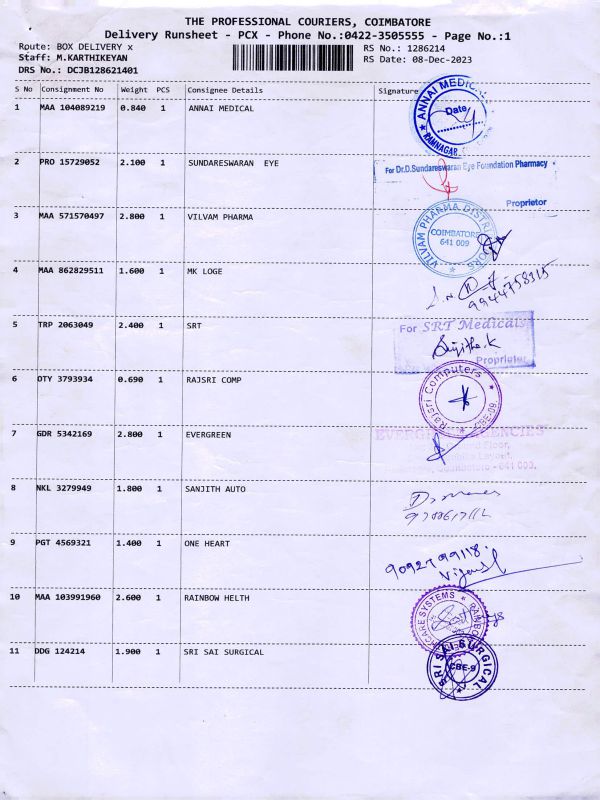 THE PROFESSIONAL COURIERS, COIMBATORE
Delivery Runsheet - PCX - Phone No.:0422-3505555 - Page No.:1
Route: BOX DELIVERY x
RS No.: 1286214
Staff: M.KARTHIKEYAN
RS Date: 08-Dec-2023
DRS No.: DCJB128621401
S No Consignment No Weight PCS Consignee Details Signature
1 MAA 104089219 0.840 1 ANNAI MEDICAL
ANNAI MEDIC
Date
RAMNAGAR
2 PRO 15729052 2.100 1 SUNDARESWARAN EYE
For Dr.D.Sundareswaran Eye Foundation Pharmacy
Proprietor
3 MAA 571570497 2.800 1 VILVAM PHARMA
VILVAM PHARMA DISTRIBUTORS
COIMBATORE
641 009
4 MAA 862829511 1.600 1 MK LOGE
9944758315
5 TRP 2063049 2.400 1 SRT
For SRT Medicals
Sujitha.K
Proprietor
6 OTY 3793934 0.690 1 RAJSRI COMP
Rajsri Computers
CBE-09
7 GDR 5342169 2.800 1 EVERGREEN
EVERGREEN AGENCIES
Floor,
Layout,
Coimbatore - 641 003.
8 NKL 3279949 1.800 1 SANJITH AUTO
9 PGT 4569321 1.400 1 ONE HEART
9092799118
10 MAA 103991960 2.600 1 RAINBOW HELTH
CARE SYSTEMS
RAINBO
11 DDG 124214 1.900 1 SRI SAI SURGICAL
SRI SAI SURGICAL
CBE-9